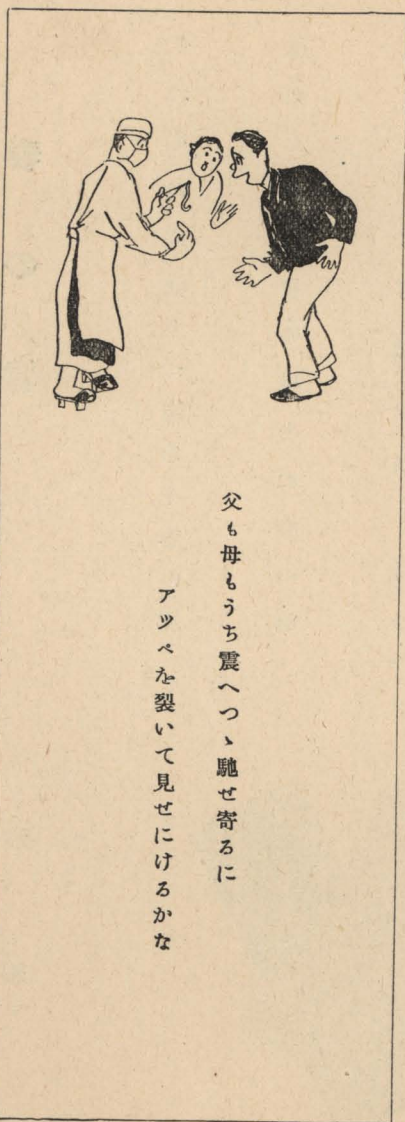 父も母もうち震へつゝ馳せ寄るに
アツペを裂いて見せにけるかな